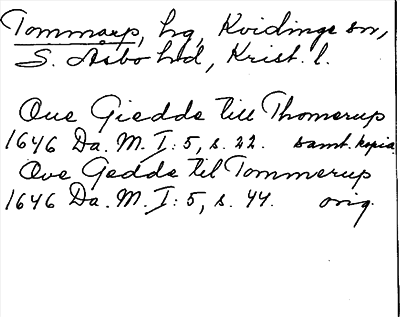 Tommarp, hg, Kvidinge sn,
S. Åsbo hd, Krist. l.
Oue Giedde till Thomerup
1646 Da. M. I: 5, s. 22. samt. kopia.
Ove Gedde til Tommerup
1646 Da. M. I: 5, s. 44. orig.